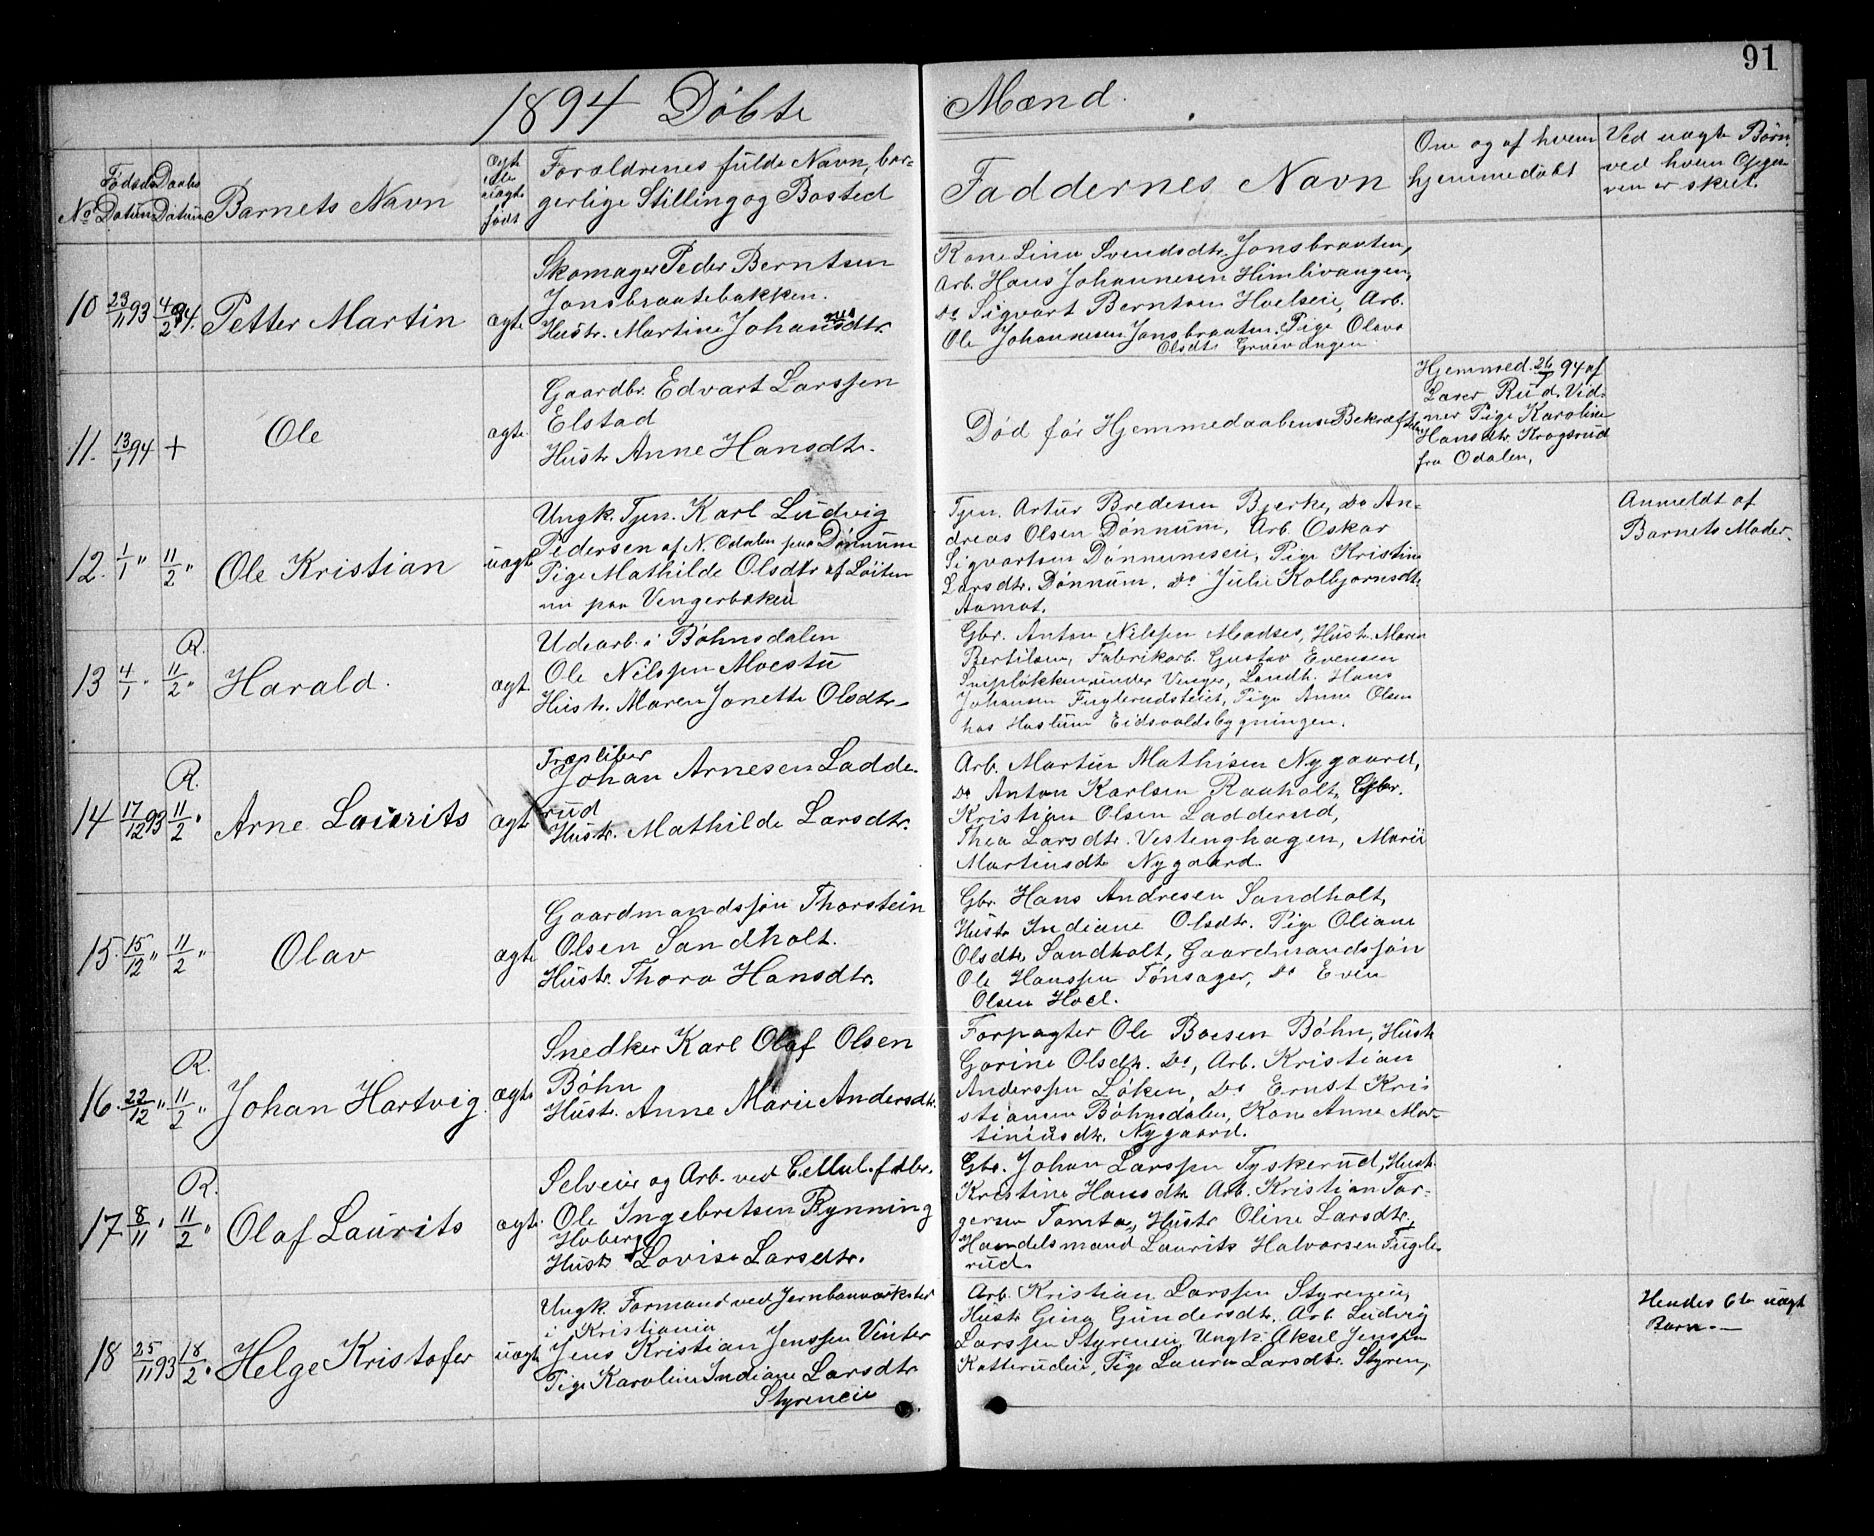 91
1894 Döbte Mænd.
No
Fødsels Datum
Daabs Datum
Barnets Navn
ægte eller uægte født
Forældrenes fulde Navn, bor-
gerlige Stilling og Bosted
Faddernes Navn
Om og af hvem
hjemmedøbt
Ved uægte Børn
ved hvem Opgav-
ven er skeet.
10 23/11 93 4/2 94. Petter Martin ægte
Skomager Peder Berntsen
Jonsbraatebakken.
Hustr. Martine Johansdtr.
Kone Lina Svendsdtr. Jonsbraaten,
Arb. Hans Johannesen Himlivangen,
Do Sigvart Berntsen Hoelseie, Arb.
Ole Johannesen Jonsbraaten. Pige Olava
Olsdtr Gruevangen
11. 13/1 94 + Ole ægte
Gaardbr. Edvart Larssen
Elstad
Hustr Anne Hansdtr.
Død før Hjemmedaabens Bekræftelse
Hjemmed. 26/1 94 af
Lærer Rud. Vid-
ner Pige Karoline
Hansdtr. Krogsrud
fra Odalen,
12. 1/1 " 11/2 " Ole Kristian uægte
Ungk. Tjen. Karl Ludvig
Pedersen af N. Odalen paa Dønnum
Pige Mathilde Olsdtr af Løiten
nu paa Vengerbakken
Tjen. Artur Bredesen Bjerke, Do An-
dreas Olsen Dønnum, Arb. Oskar
Sigvartsen Dønnumseie, Pige Kristine
Larsdtr. Dønnum. Do Julie Kolbjørnsdtr
Aamot.
Anmeldt af
Barnets Moder.
13 4/1 " R. 11/2 " Harald. ægte.
Udearb. i Bøhnsdalen
Ole Nilssen Moestu
Hustr. Maren Jonette Olsdtr.
Gbr. Anton Nilssen Modses, Hustr. Maren
Bertilsen, Fabrikarb. Gustav Evensen
under Venger, Landh. Hans
Johansen Fuglerudsteiet, Pige Anne Olsen
hos Haslum Eidsvoldsbygningen.
14 17/12 93 R. 11/2 " Arne Laurits ægte
Træsliber
Johan Arnesen Ladde-
rud
Hustr. Mathilde Larsdtr.
Arb. Martin Mathisen Nygaard,
Do Anton Karlsen Raaholt, Gbr.
Kristian Olsen Ladderud,
Thea Larsdtr. Vestenghagen, Marie
Martinsdtr Nygaard.
15. 15/12 " 11/2 " Olav ægte
Gaardmandssøn Thorstein
Olsen Sandholt.
Hustr. Thora Hansdtr.
Gbr. Hans Andresen Sandholt,
Hustr Indiane Olsdtr. Pige Oliane
Olsdtr. Sandholt, Gaardmandssøn
Ole Hanssen Tønsager, Do Even
Olsen Hoel.
16. 22/12 " R. 11/2 " Johan Hartvig ægte
Snedker Karl Olaf Olsen
Bøhn
Hustr. Anne Marie Andersdtr.
Forpagter Ole Boesen Bøhn, Hustr
Gorine Olsdtr. Do, Arb. Kristian
Anderssen Løken, Do Ernst Kris
stiansen Bøhnsdalen, Kone Anne Mar-
tiniusdtr. Nygaard.
17 8/11 " R. 11/2 " Olaf Laurits ægte.
Selveier og Arb. ved Cellul. fabr.
Ole Ingebretsen Rynning
Hoberg
Hustr Lovise Larsdtr.
Gbr. Johan Larssen Tyskerud, Hustr.
Kristine Hansdtr. Arb. Kristian Tor-
gersen Tomta, Hustr Oline Larsdtr,
Handelsmand Laurits Halvorsen Fugle-
rud.
18 25/11 93 18/2 " Helge Kristofer uægte
Ungk. Formand ved Jernbaneværksted
i Kristiania
Jens Kristian Jenssen Vinter
Pige Karoline Indiane Larsdtr
Styreneie
Arb. Kristian Larssen Styreneie,
Hustr Gina Gundersdtr. Arb. Ludvig
Larssen Styreneie, Ungk. Aksel Jenssen
Katterudeie, Pige Laura Larsdtr. Styren,
Hendes 6te uægt
Barn.